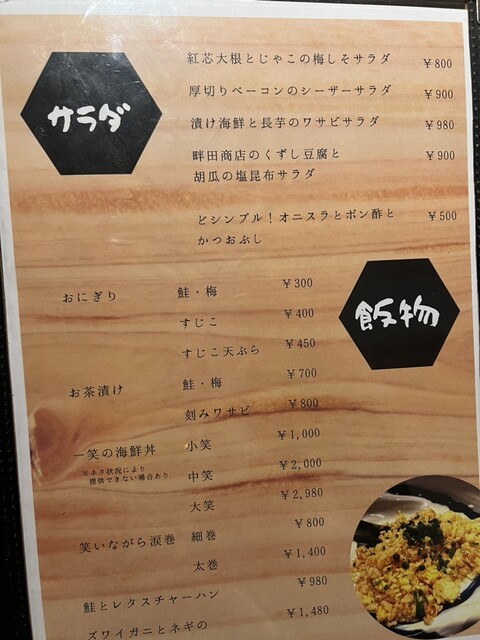 サラダ
紅芯大根とじゃこの梅しそサラダ ¥800
厚切りベーコンのシーザーサラダ ¥900
漬け海鮮と長芋のワサビサラダ ¥980
畔田商店のくずし豆腐と ¥900
胡瓜の塩昆布サラダ
どシンプル！オニスラとポン酢と ¥500
かつおぶし
飯物
おにぎり 鮭・梅 ¥300
すじこ ¥400
すじこ天ぷら ¥450
お茶漬け 鮭・梅 ¥700
刻みワサビ ¥800
一笑の海鮮丼 小笑 ¥1,000
※ネタ状況により
提供できない場合あり
中笑 ¥2,000
大笑 ¥2,980
笑いながら涙巻 細巻 ¥800
太巻 ¥1,400
鮭とレタスチャーハン ¥980
ズワイガニとネギの ¥1,480